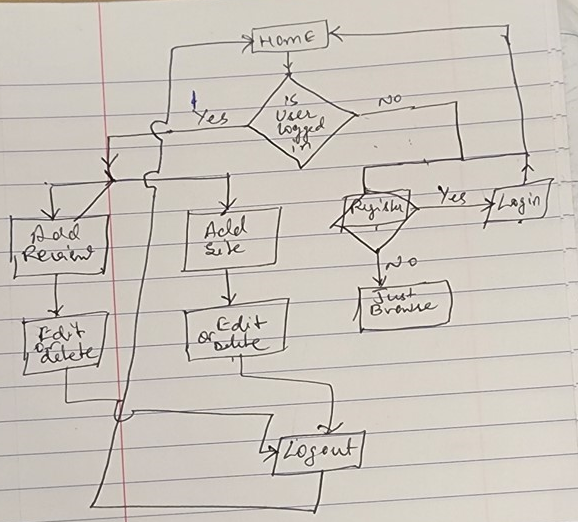 HOME
is
User
logged
in
Yes
NO
Add
Review
Add
Site
Register
Yes
Login
NO
Just
Browse
Edit
or
delete
Edit
or Delete
Logout